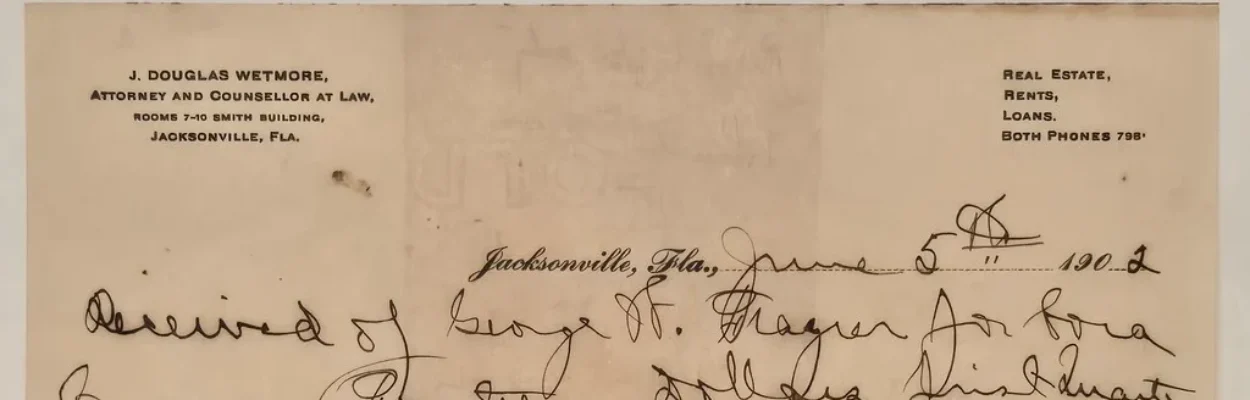 J. DOUGLAS WETMORE,
ATTORNEY AND COUNSELLOR AT LAW,
ROOMS 7-10 SMITH BUILDING,
JACKSONVILLE, FLA.
REAL ESTATE,
RENTS,
LOANS.
BOTH PHONES 798.
Jacksonville, Fla., June 5th 1902
Received of George W. Frazier for Cora
Dollars first